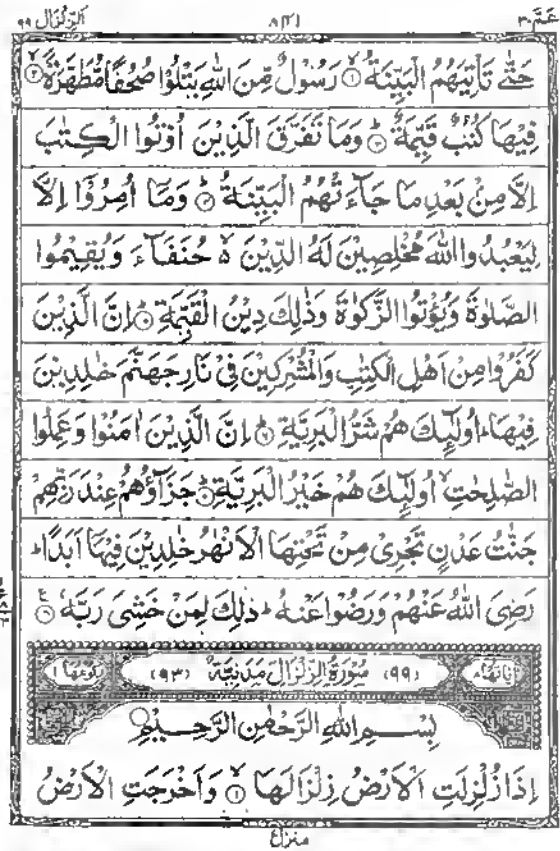 عَمَّ ٣٠ ٨٢١ اَلزِّلْزَال ٩٩
حَتّٰى تَاْتِيَهُمُ الْبَيِّنَةُ ۙ﴿۱﴾ رَسُوْلٌ مِّنَ اللّٰهِ يَتْلُوْا صُحُفًا مُّطَهَّرَةً ۙ﴿۲﴾
فِيْهَا كُتُبٌ قَيِّمَةٌ ؕ﴿۳﴾ وَمَا تَفَرَّقَ الَّذِيْنَ اُوْتُوا الْكِتٰبَ
اِلَّا مِنْۢ بَعْدِ مَا جَآءَتْهُمُ الْبَيِّنَةُ ؕ﴿۴﴾ وَمَا اُمِرُوْۤا اِلَّا
لِيَعْبُدُوا اللّٰهَ مُخْلِصِيْنَ لَهُ الدِّيْنَ ۙ۬ حُنَفَآءَ وَيُقِيْمُوا
الصَّلٰوةَ وَيُؤْتُوا الزَّكٰوةَ وَذٰلِكَ دِيْنُ الْقَيِّمَةِ ؕ﴿۵﴾ اِنَّ الَّذِيْنَ
كَفَرُوْا مِنْ اَهْلِ الْكِتٰبِ وَالْمُشْرِكِيْنَ فِيْ نَارِ جَهَنَّمَ خٰلِدِيْنَ
فِيْهَا ؕ اُولٰٓئِكَ هُمْ شَرُّ الْبَرِيَّةِ ؕ﴿۶﴾ اِنَّ الَّذِيْنَ اٰمَنُوْا وَعَمِلُوا
الصّٰلِحٰتِ ۙ اُولٰٓئِكَ هُمْ خَيْرُ الْبَرِيَّةِ ؕ﴿۷﴾ جَزَآؤُهُمْ عِنْدَ رَبِّهِمْ
جَنّٰتُ عَدْنٍ تَجْرِيْ مِنْ تَحْتِهَا الْاَنْهٰرُ خٰلِدِيْنَ فِيْهَاۤ اَبَدًا ؕ
رَضِيَ اللّٰهُ عَنْهُمْ وَرَضُوْا عَنْهُ ؕ ذٰلِكَ لِمَنْ خَشِيَ رَبَّهٗ ﴿۸﴾ ع
اٰيَاتُهَا ٨ (٩٩) سُوْرَةُ الزِّلْزَالِ مَدَنِيَّةٌ (٩٣) رُكُوْعُهَا ١
بِسْمِ اللّٰهِ الرَّحْمٰنِ الرَّحِيْمِ
اِذَا زُلْزِلَتِ الْاَرْضُ زِلْزَالَهَا ۙ﴿۱﴾ وَاَخْرَجَتِ الْاَرْضُ